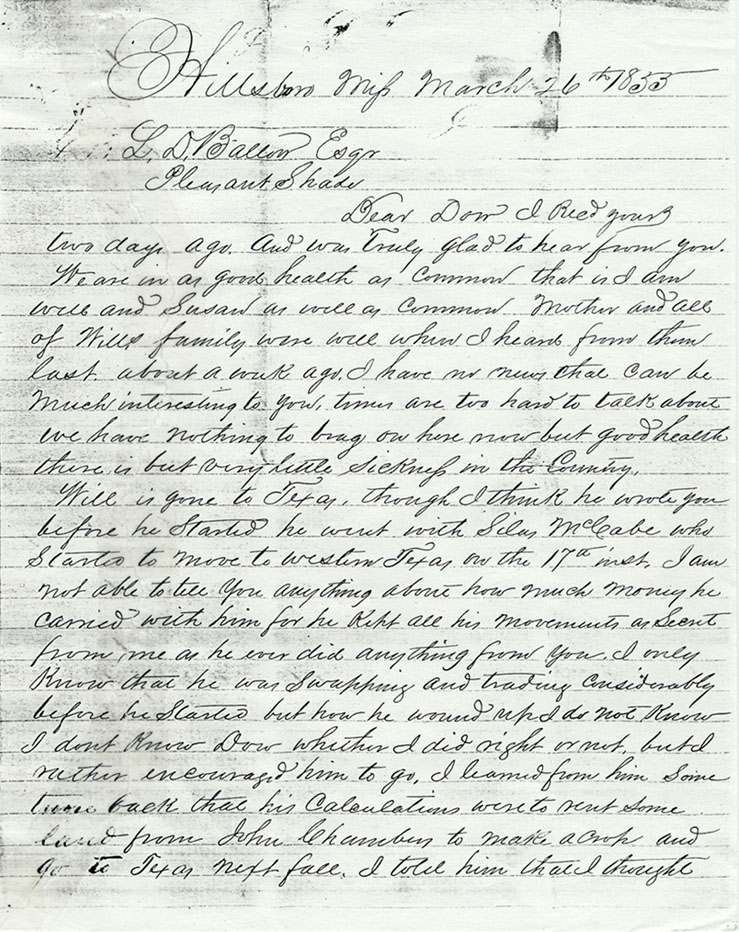 Hillsboro Miss March 26th 1855
L. D. Ballow Esqr
Pleasant Shade
Dear Dow I Recd yours
two days ago. And was Truly glad to hear from you.
We are in as good health as Common that is I am
well and Susan as well as Common Mother and all
of Wills family were well when I heard from them
last. about a week ago. I have no news that can be
Much interesting to you, times are too hard to talk about
we have nothing to brag on here now but good health
there is but very little Sickness in the Country.
Will is gone to Texas, though I think he wrote you
before he Started he went with Silas McCabe who
Started to move to western Texas on the 17th inst, I am
not able to tell You anything about how much money he
carried with him for he Kept all his movements as Secret
from me as he ever did anything from you, I only
Know that he was Swapping and trading Considerably
before he Started but how he wound up I do not Know
I dont Know Dow whether I did right or not, but I
rather encouragd him to go, I learned from him Some
time back that his Calculations were to rent Some
land from John Chambers to make a crop and
go to Texas next fall. I told him that I thought